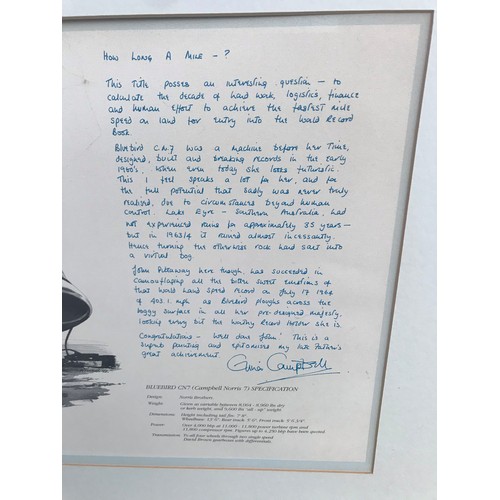 How Long A Mile - ?
This Title posses an interesting question - to
calculate the decade of hard work, logistics, finance
and human effort to achieve the fastest mile
speed on land for entry into the World Record
Book.
Bluebird C.N.7 was a machine before her time,
designed, built and breaking records in the early
1960's, when even today she looks futuristic.
This I feel speaks a lot for her, and for
the full potential that sadly was never truly
realised, due to circumstances beyond human
control. Lake Eyre - Southern Australia, had
not experienced rains for approximately 35 years -
but in 1963/4 it rained almost incessantly.
Hence turning the otherwise rock hard salt into
a virtual bog.
John here though, has succeeded in
Camouflaging all the bitter sweet emotions of
that world land speed record on July 17 1964
of 403.1 mph as Bluebird ploughs across the
boggy surface in all her pre-designed majesty.
looking every bit the worthy Record Holder she is.
Congratulations - Well done John! This is a
superb painting and epitomises my late Father's
great achievement. Gina Campbell
BLUEBIRD CN7 (Campbell Norris 7) SPECIFICATION
Design: Norris Brothers.
Weight:
Dimensions: Height including tail fin: 7'-8"
Power:
Transmission: To all four wheels through two single speed
David Brown gearboxes with differentials.